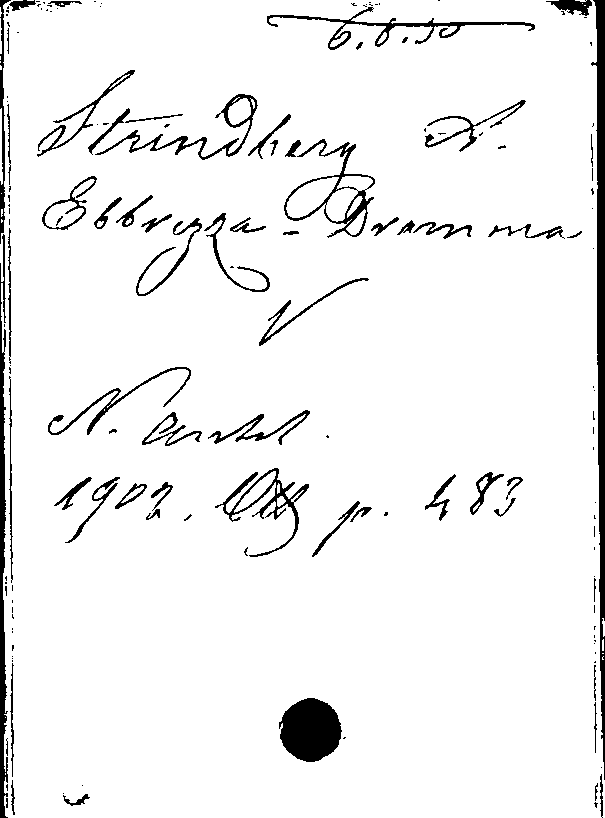 6.8.30
Strindberg A.
Ebbrezza - Dramma
V
N. Antol.
1902. Ott p. 483